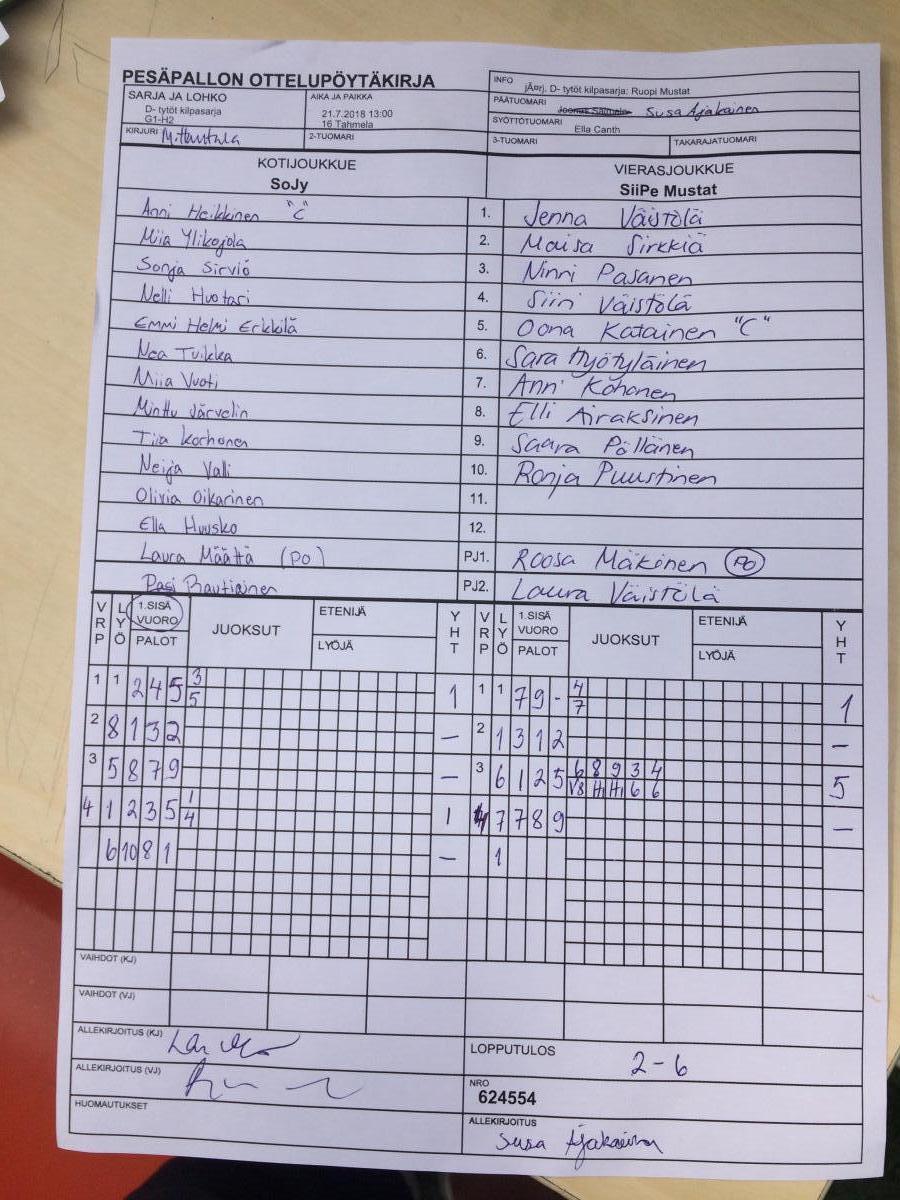 PESÄPALLON OTTELUPÖYTÄKIRJA
INFO
jÃ¤rj, D- tytöt kilpasarja: Ruopi Mustat
SARJA JA LOHKO
D- tytöt kilpasarja
G1-H2
AIKA JA PAIKKA
21.7.2018 13:00
16 Tahmela
PÄÄTUOMARI
Susa Ajakainen
SYÖTTÖTUOMARI
Ella Canth
KIRJURI
2-TUOMARI
3-TUOMARI
TAKARAJATUOMARI
KOTIJOUKKUE
SoJy
VIERASJOUKKUE
SiiPe Mustat
Anni Heikkinen "C" 1. Jenna Väistölä
Miia Ylikojola 2. Maisa Sirkkiä
Sonja Sirviö 3. Ninni Pasanen
Nelli Huotari 4. Siiri Väistölä
Emmi Helmi Erkkilä 5. Oona Katainen "C"
Nea Tuikka 6. Sara Hyötyläinen
Miia Vuoti 7. Anni Kohonen
Minttu Järvelin 8. Elli Airaksinen
Tiia Korhonen 9. Saara Pöllänen
Neija Vali 10. Ronja Puustinen
Olivia Oikarinen 11.
Ella Huusko 12.
Laura Määttä (PO) PJ1. Roosa Mäkönen PO
Pasi Rautiainen PJ2. Laura Väistölä
VRP LYÖ 1.SISÄ VUORO PALOT JUOKSUT ETENIJÄ LYÖJÄ YHT VRP LYÖ 1.SISÄ VUORO PALOT JUOKSUT ETENIJÄ LYÖJÄ YHT
1 1 2 4 5 3 5 1 1 1 7 9 - 4 7 1
2 8 1 3 2 – 2 1 3 1 2 –
3 5 8 7 9 – 3 6 1 2 5 6 8 9 3 4 V8 H1 H1 6 6 5
4 1 2 3 5 1 4 1 4 7 7 8 9 –
6 10 8 1 – 1
VAIHDOT (KJ)
VAIHDOT (VJ)
ALLEKIRJOITUS (KJ)
LOPPUTULOS
2-6
ALLEKIRJOITUS (VJ)
NRO
624554
HUOMAUTUKSET
ALLEKIRJOITUS
Susa Ajakainen